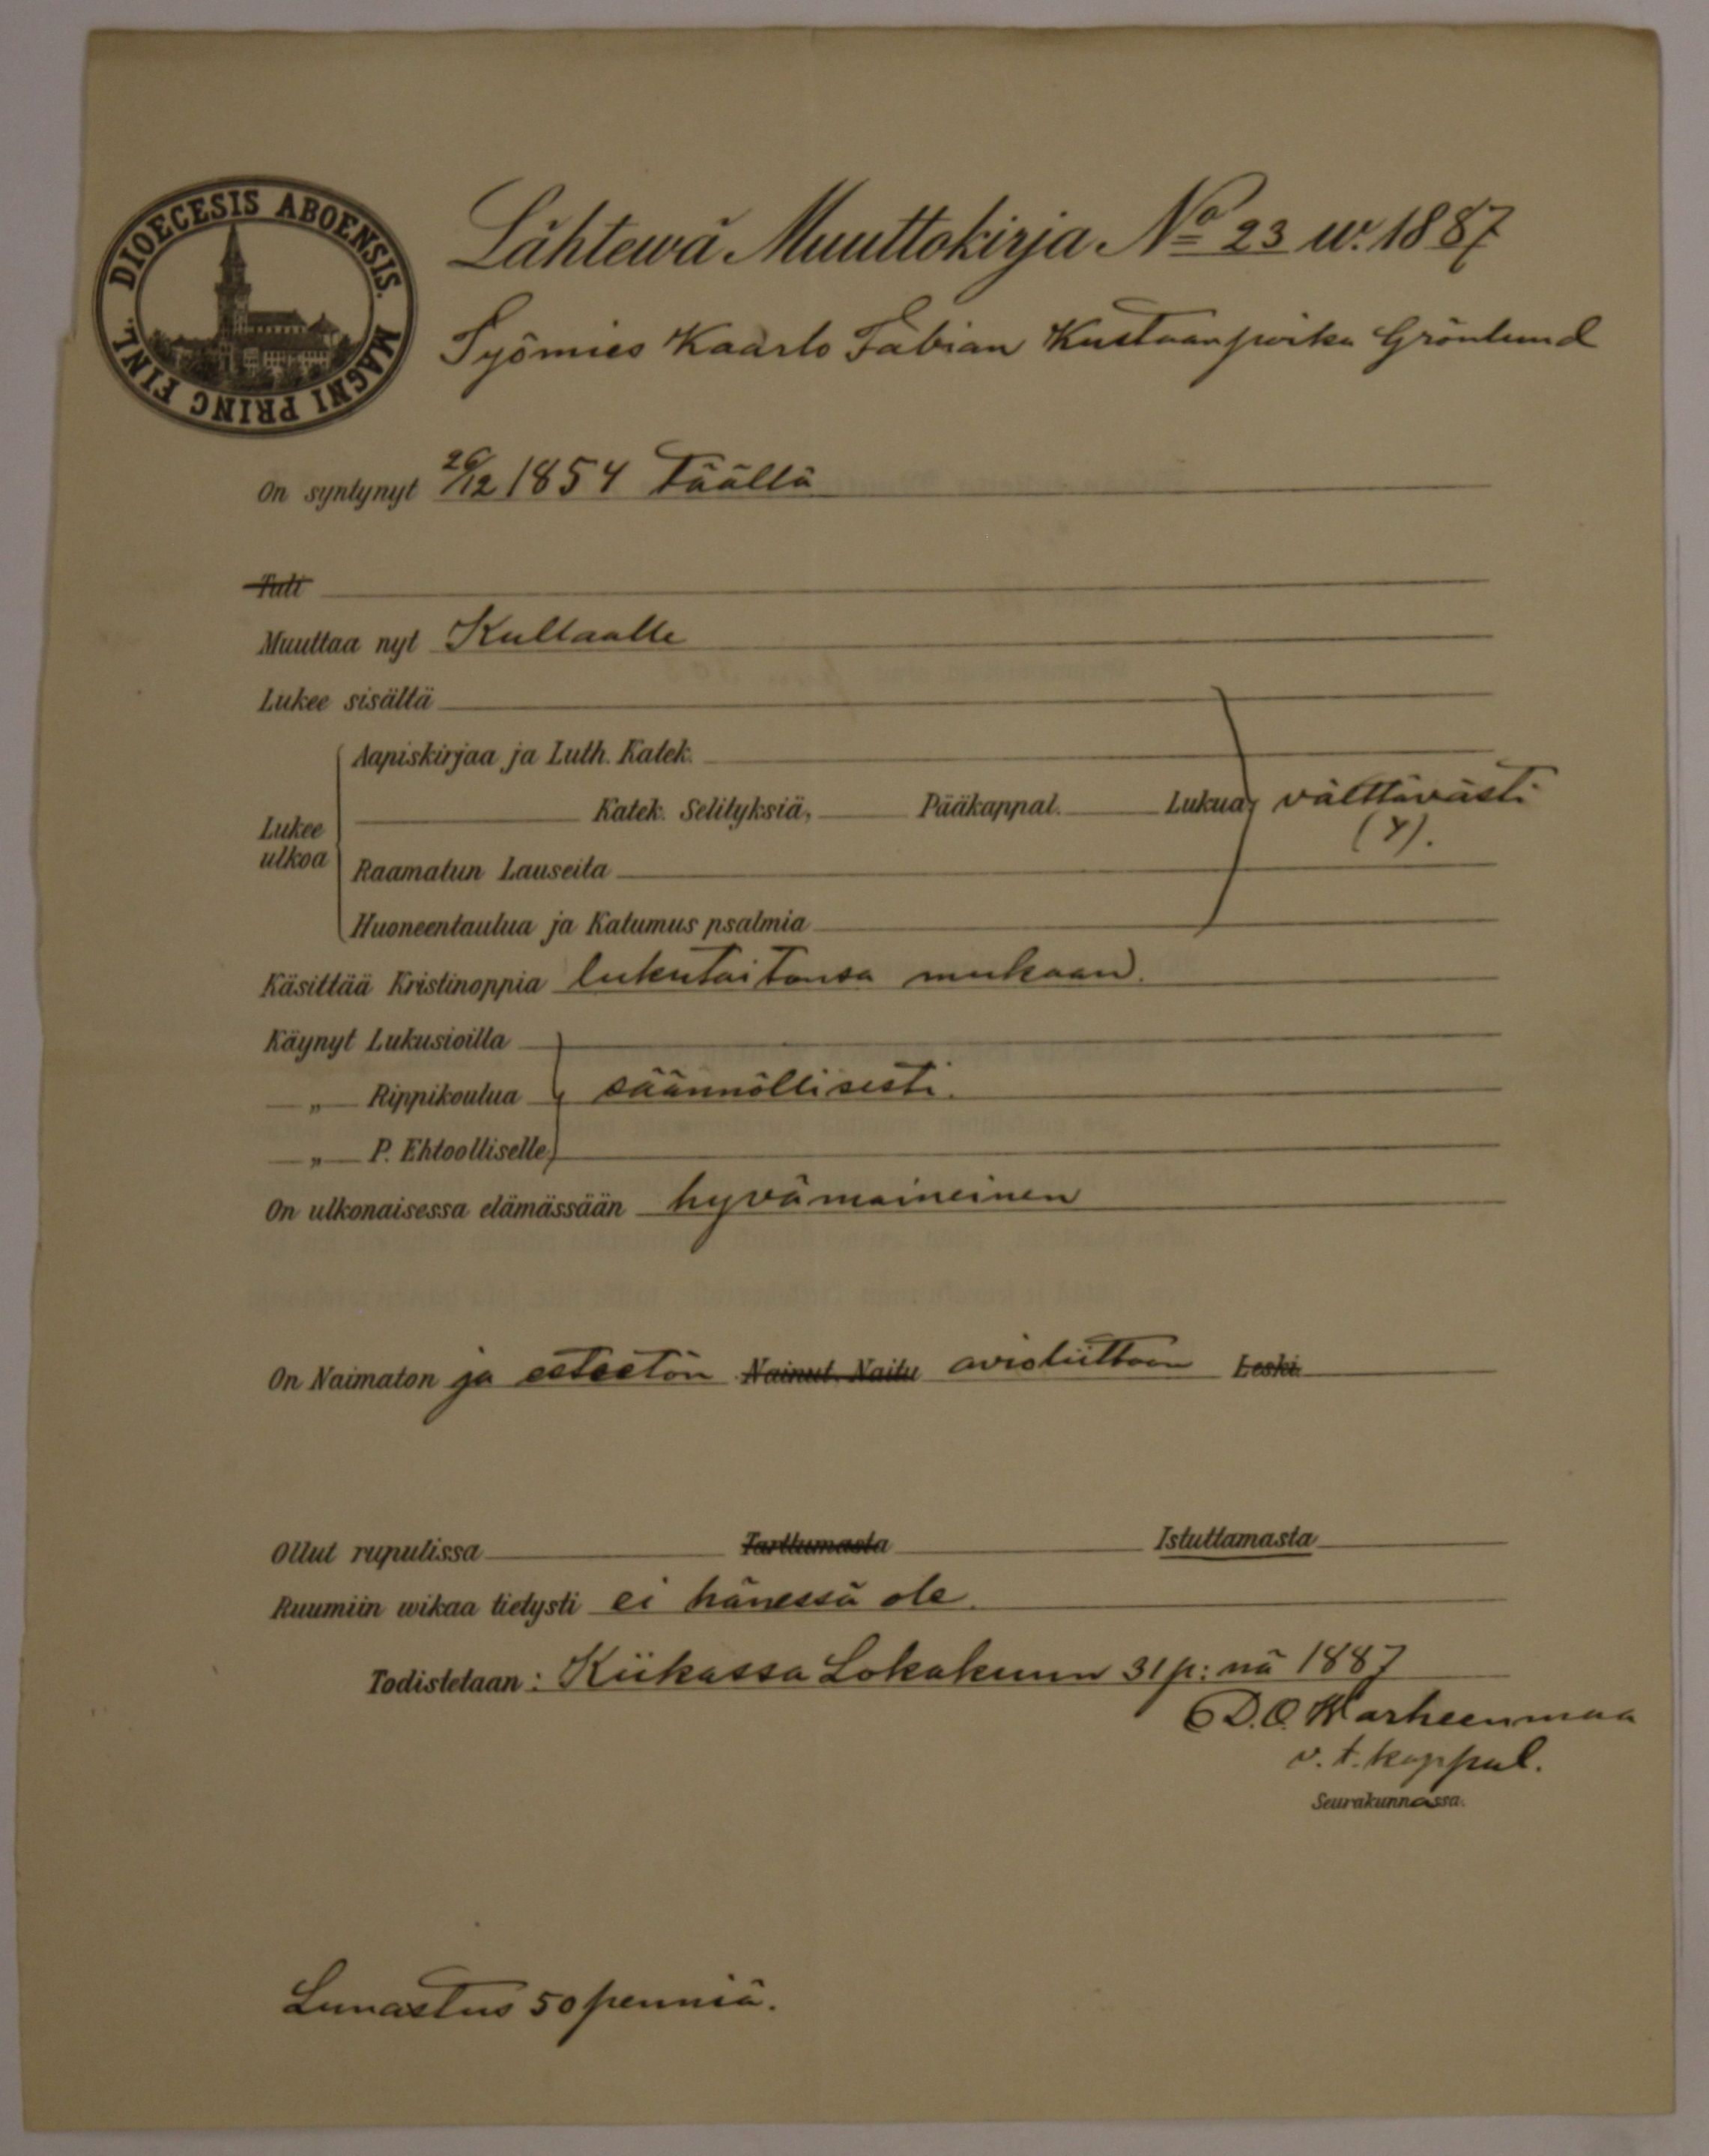 DIOECESIS ABOENSIS. MAGNI PRINC FINL.
Lähtewä Muuttokirja No 23 w. 1887
Työmies Kaarlo Fabian Kustaanpoika Grönlund
On syntynyt 26/12 1854 Täällä
Tuli
Muuttaa nyt Kullaalle
Lukee sisältä
Lukee ulkoa
Aapiskirjaa ja Luth. Katek.
Katek. Selityksiä, Pääkappal. Lukua, välttävästi
(Y).
Raamatun Lauseita
Huoneentaulua ja Katumus psalmia
Käsittää Kristinoppia lukutaitonsa mukaan.
Käynyt Lukusioilla
„ Rippikoulua säännöllisesti.
„ P. Ehtoolliselle
On ulkonaisessa elämässään hyvämaineinen
On Naimaton ja esteetön Nainut. Naitu avioliittoon Leski.
Ollut rupulissa Tarttumasta Istuttamasta
Ruumiin wikaa tietysti ei hänessä ole.
Todistetaan: Kiikassa Lokakuun 31 p:nä 1887
D. O. Warheenmaa
v. t. kappal.
Seurakunnassa.
Lunastus 50 penniä.